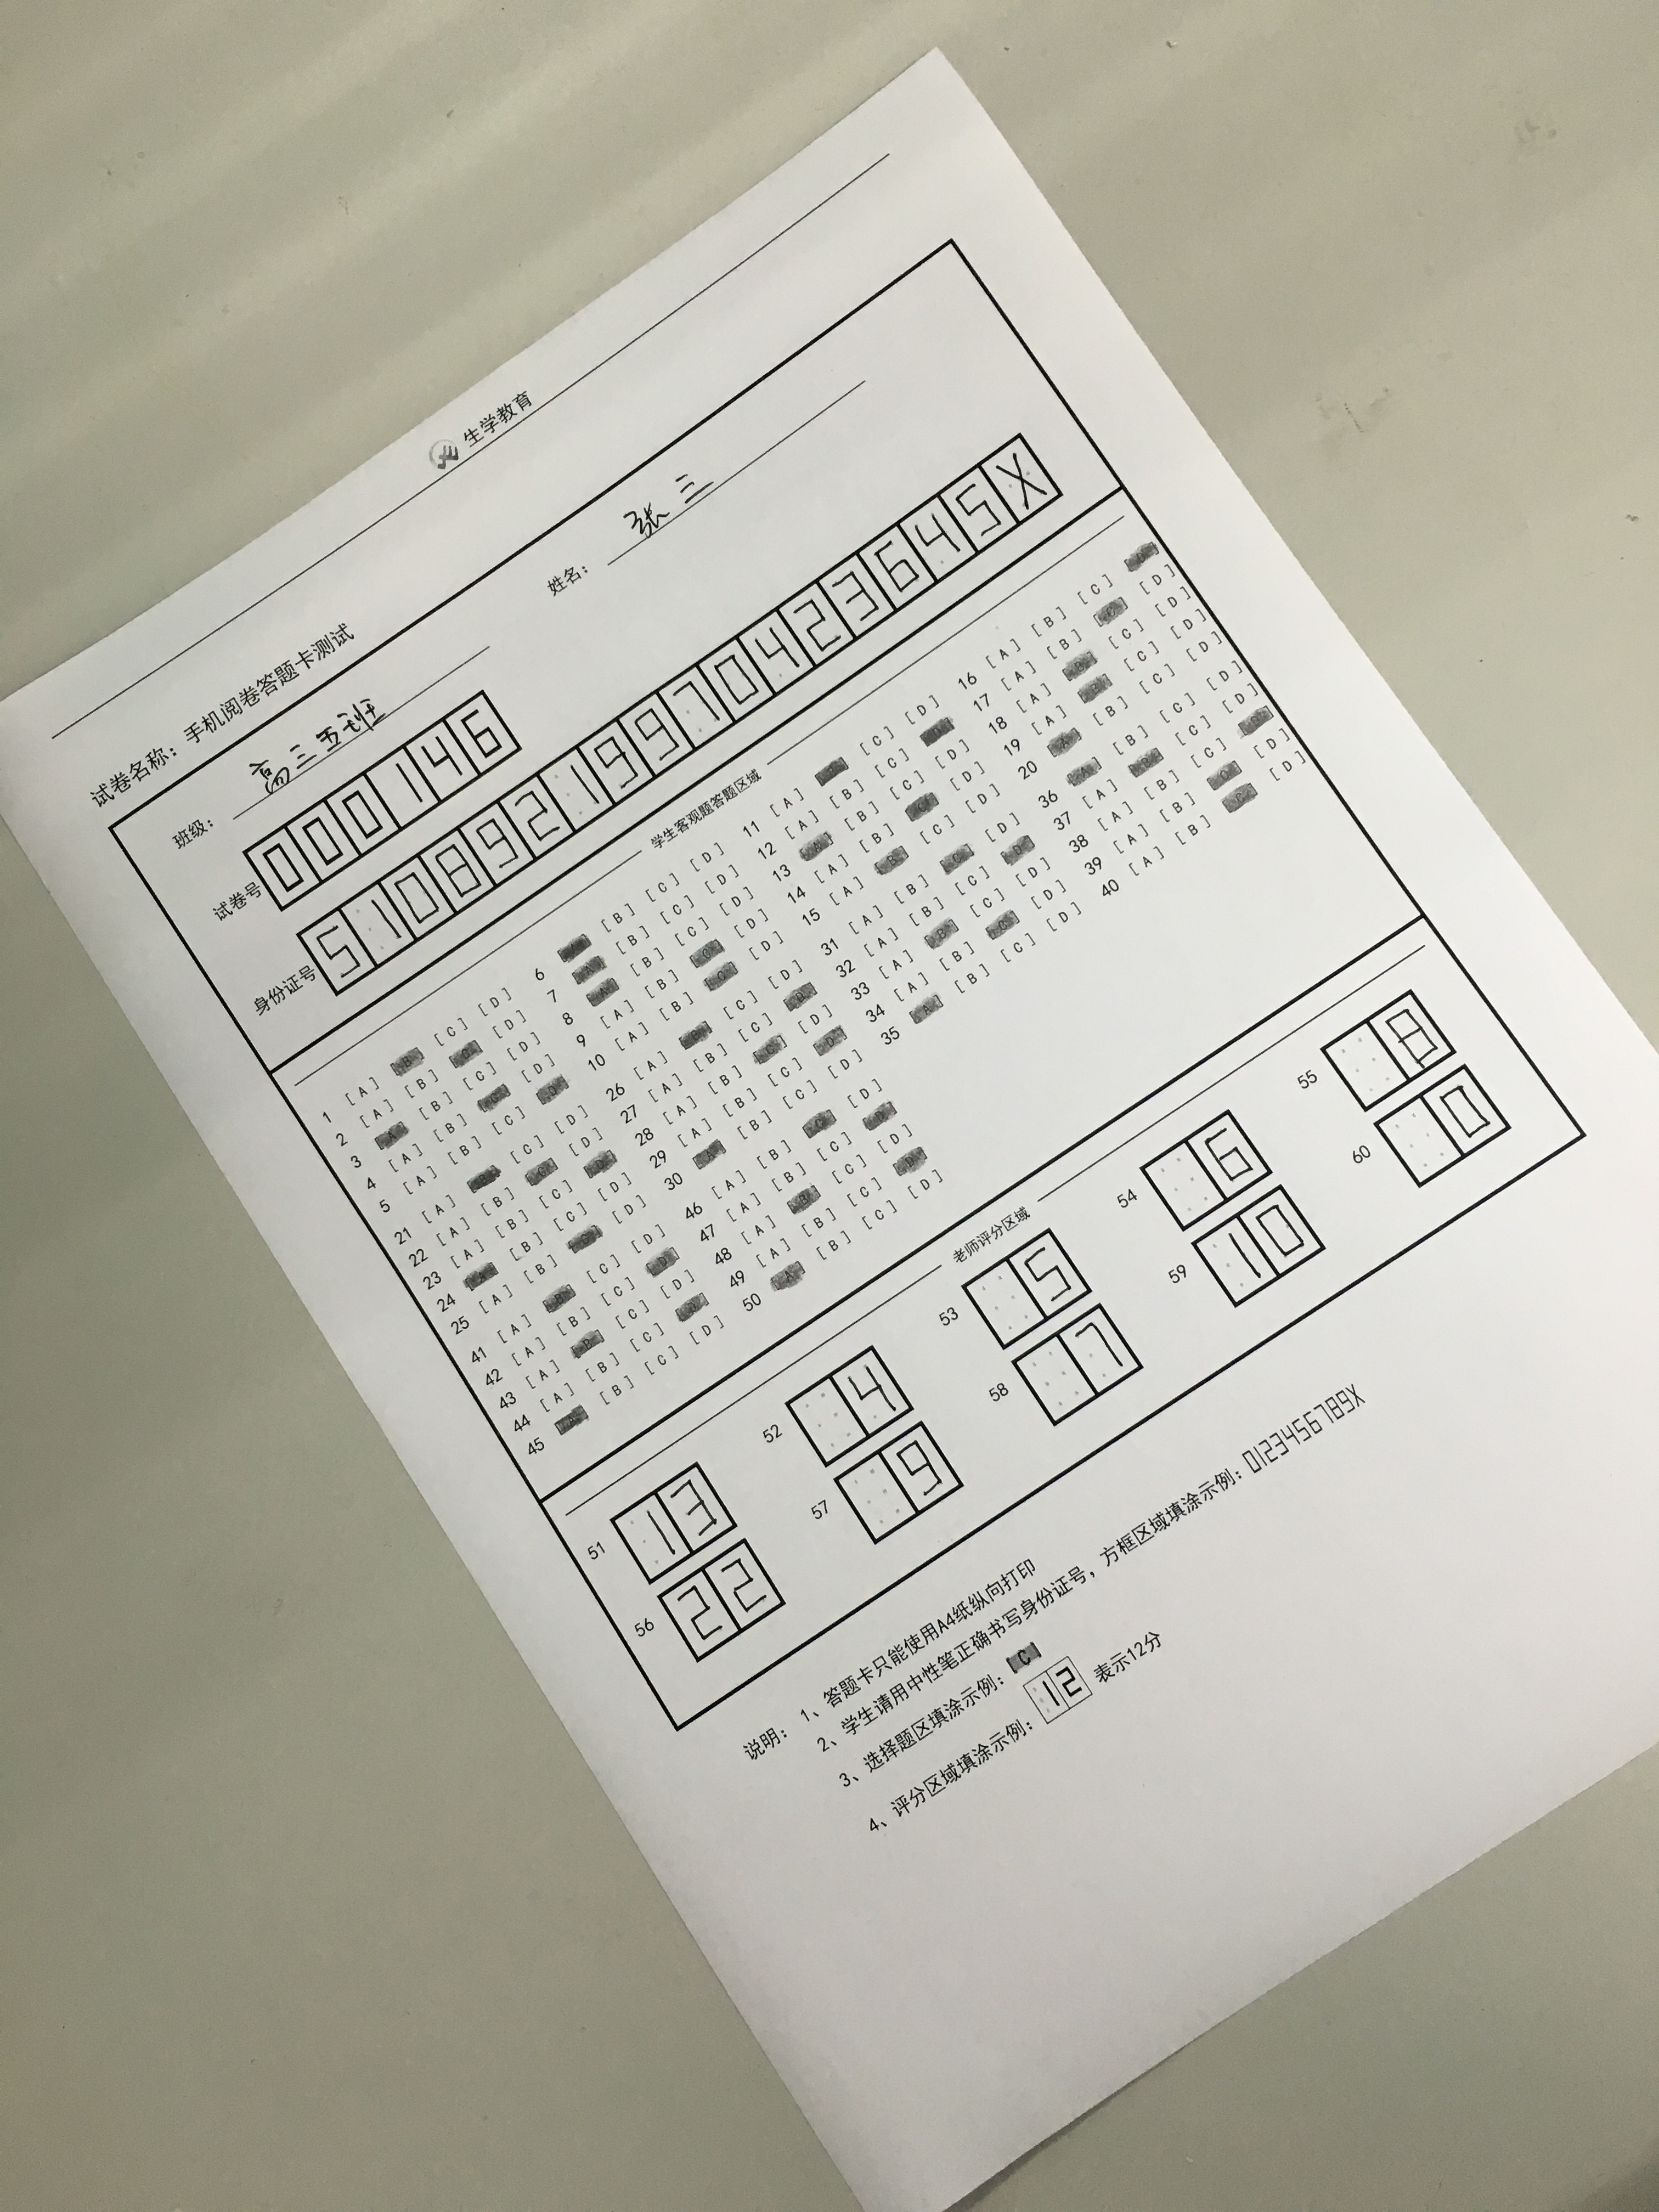 生学教育
试卷名称：手机阅卷答题卡测试
班级：高三五班 姓名：张三
试卷号 000146
身份证号 51089219970423645X
学生客观题答题区域
1 [A] [B] [C] [D] 6 [A] [B] [C] [D] 11 [A] [B] [C] [D] 16 [A] [B] [C] [D]
2 [A] [B] [C] [D] 7 [A] [B] [C] [D] 12 [A] [B] [C] [D] 17 [A] [B] [C] [D]
3 [A] [B] [C] [D] 8 [A] [B] [C] [D] 13 [A] [B] [C] [D] 18 [A] [B] [C] [D]
4 [A] [B] [C] [D] 9 [A] [B] [C] [D] 14 [A] [B] [C] [D] 19 [A] [B] [C] [D]
5 [A] [B] [C] [D] 10 [A] [B] [C] [D] 15 [A] [B] [C] [D] 20 [A] [B] [C] [D]
21 [A] [B] [C] [D] 26 [A] [B] [C] [D] 31 [A] [B] [C] [D] 36 [A] [B] [C] [D]
22 [A] [B] [C] [D] 27 [A] [B] [C] [D] 32 [A] [B] [C] [D] 37 [A] [B] [C] [D]
23 [A] [B] [C] [D] 28 [A] [B] [C] [D] 33 [A] [B] [C] [D] 38 [A] [B] [C] [D]
24 [A] [B] [C] [D] 29 [A] [B] [C] [D] 34 [A] [B] [C] [D] 39 [A] [B] [C] [D]
25 [A] [B] [C] [D] 30 [A] [B] [C] [D] 35 [A] [B] [C] [D] 40 [A] [B] [C] [D]
41 [A] [B] [C] [D] 46 [A] [B] [C] [D]
42 [A] [B] [C] [D] 47 [A] [B] [C] [D]
43 [A] [B] [C] [D] 48 [A] [B] [C] [D]
44 [A] [B] [C] [D] 49 [A] [B] [C] [D]
45 [A] [B] [C] [D] 50 [A] [B] [C] [D]
老师评分区域
51 13 52 4 53 5 54 6 55
56 22 57 9 58 7 59 10 60 0
说明：1、答题卡只能使用A4纸纵向打印
2、学生请用中性笔正确书写身份证号，方框区域填涂示例：0123456789X
3、选择题区填涂示例：C
4、评分区域填涂示例：12 表示12分